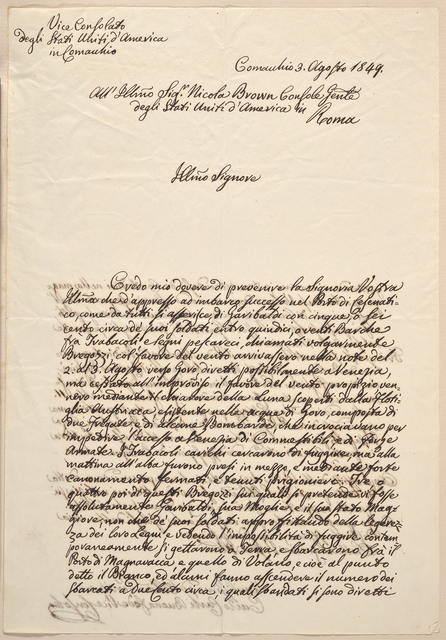 Vice Consolato
degli Stati Uniti d'America
in Comachio
Comachio 3. Agosto 1849.
All' Illmo Sigr. Nicola Brown Console Gente
degli Stati Uniti d'America in
Roma
Illmo Signore
Credo mio dovere di prevenire la Signoria Vostra
Illma che d'appresso ad imbarco successo nel Porto di Cesenati-
co, come da tutti si asserisce, di Garibaldi con cinque, o sei
cento circa de' suoi soldati entro quindici, o venti Barche
fra Trabacoli e Legni pescareci, chiamati volgarmente
Bregozzi col favore del vento arrivassero nella notte del
2. al 3. Agosto verso Goro diretti possibilmente a Venezia,
ma cessato all' improviso il favore del vento propizio ven-
nero mediante il chiarore della Luna scoperti dalla Floti-
glia Austriaca esistente nelle acque di Goro, composta di
due Fregate e di alcune Bombarde, che incrociavano per
impedire l'accesso a Venezia di Commestibili, e di Forze
Armate. I Trabacoli carichi cercarono di fuggire, ma alla
mattina all' alba furono presi in mezzo, e mediante forte
canonamento fermati, e tenuti prigionieri. Tre, o
quattro poi di questi Bregozzi sui quali si pretende vi fosse
assolutamente Garibaldi, sua Moglie, e il suo Stato Mag-
giore, non che de' suoi soldati approfittando della legerez-
za dei loro Legni, e vedendo l'impossibilità di fuggire contem-
poraneamente si gettarono a Terra, e sbarcarono fra il
Porto di Magnavacca e quello di Volano, e cioè al punto
detto il Bianco, ed alcuni fanno ascendere il numero dei
sbarcati a duecento circa, i quali sbandati si sono diretti